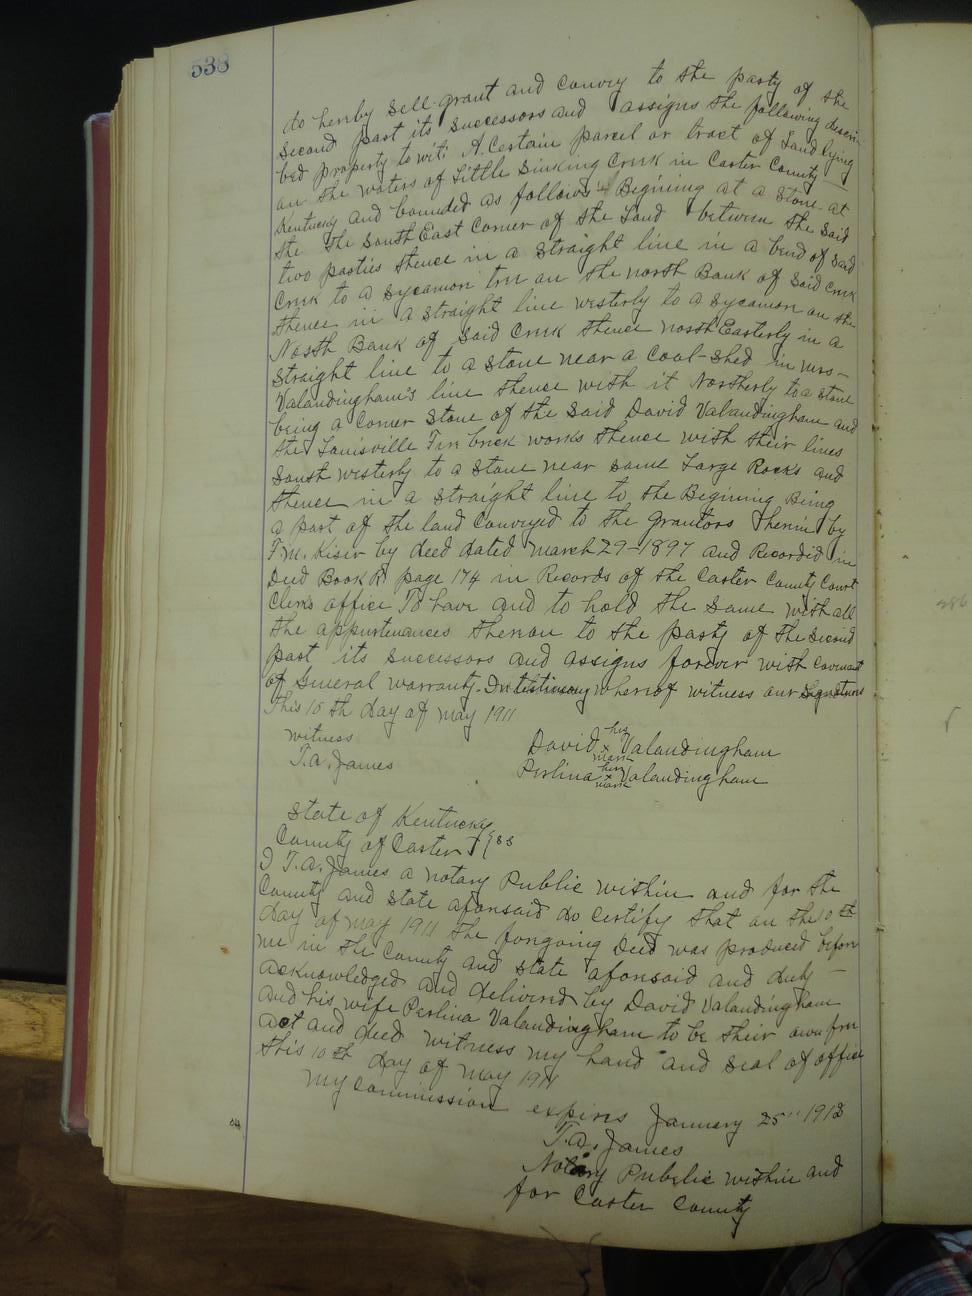 538
do hereby sell grant and convey to the party of the
second part its successors and assigns the following descri-
bed property to wit: A Certain parcel or tract of Land lying
on the waters of Little Sinking Creek in Carter County
Kentucky and bounded as follows Begining at a Stone at
the the South East Corner of the Land between the said
two parties thence in a straight line in a bend of said
Creek to a sycamore tree on the north Bank of said creek
thence in a straight line westerly to a sycamore on the
North Bank of said Creek thence north Easterly in a
straight line to a stone near a coal-shed in mrs-
Valandingham's line thence with it Northerly to a stone
being a corner stone of the said David Valandingham and
the Louisville Fire brick works thence with their lines
South westerly to a stone near some Large Rocks and
thence in a straight line to the Begining Being
a part of the land conveyed to the grantors therein by
F.M. Kiser by deed dated march 29-1897 and Recorded in
Deed Book R page 174 in Records of the Carter County Court
Clerks office To have and to hold the same with all
the appurtenances thereon to the party of the second
part its successors and assigns forever with covenant
of General warranty. In testimony whereof witness our signatures
This 10th day of may 1911
witness
T.A. James
David his x mark Valandingham
Perlina her x mark Valandingham
State of Kentucky
County of Carter } ss
I T.A. James a notary Public within and for the
County and state aforesaid do certify that on the 10th
day of may 1911 the foregoing Deed was produced before
me in the County and state aforesaid and duly -
acknowledged and delivered by David Valandingham
and his wife Perlina Valandingham to be their own free
act and deed witness my hand and seal of office
this 10th day of may 1911
my commission expires January 25" 1912
T.A. James
Notary Public within and
for Carter County